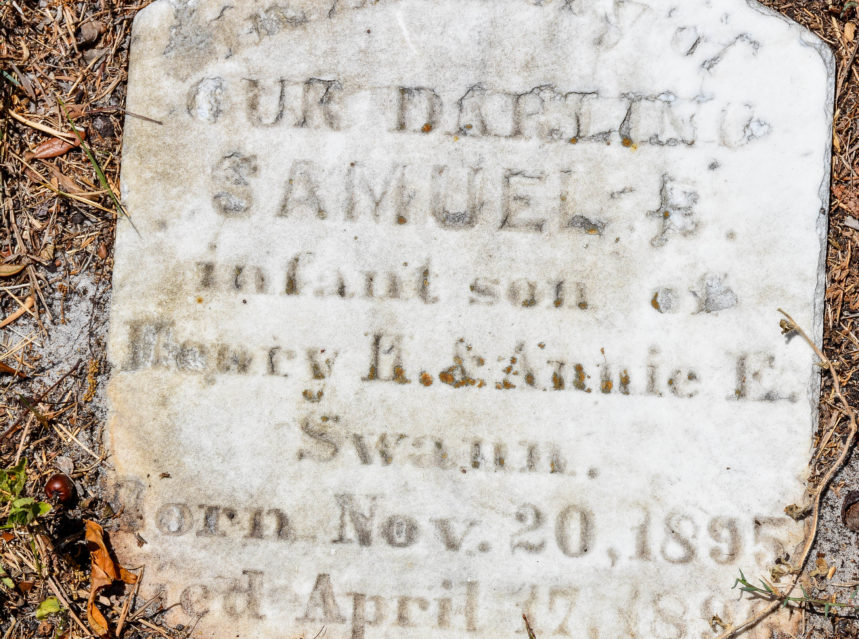 OUR DARLING
SAMUEL E.
infant son of
Henry H. & Annie E.
Swann.
Born Nov. 20, 1895
April 17,